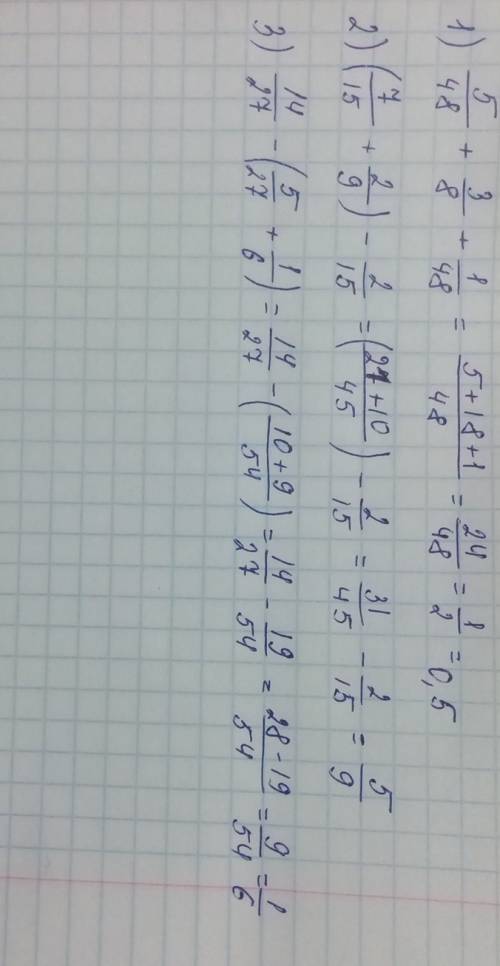 1) 5/48 + 3/8 + 1/48 = (5+18+1)/48 = 24/48 = 1/2 = 0,5
2) (7/15 + 2/9) - 2/15 = ((21+10)/45) - 2/15 = 31/45 - 2/15 = 5/9
3) 14/27 - (5/27 + 1/6) = 14/27 - ((10+9)/54) = 14/27 - 19/54 = (28-19)/54 = 9/54 = 1/6